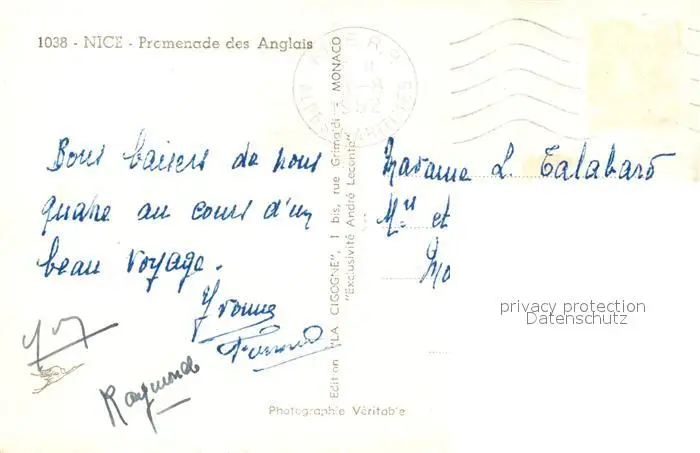 1038 - NICE - Promenade des Anglais
Bons baisers de nous
quatre au cours d'un
beau voyage.
Yvonne
Raymonde
Edition "LA CIGOGNE", 1 bis, rue Grimaldi - MONACO
"Exclusivité André Leconte"
Madame L. Talabard
Mr et
privacy protection
Datenschutz
Photographie Véritable